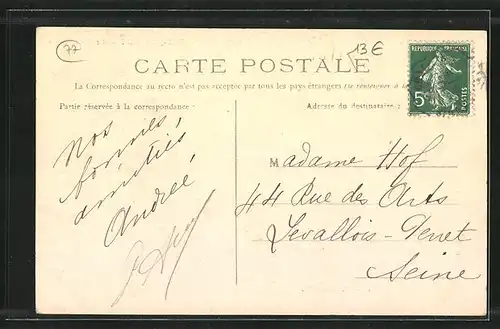 77
13€
CARTE POSTALE
REPUBLIQUE FRANÇAISE
5c
POSTES
La Correspondance au recto n'est pas acceptée par tous les pays étrangers (se renseigner à la
Partie réservée à la correspondance :
Adresse du destinataire :
Nos
bonnes
amitiés
Andrée
Madame Hof
44 Rue des Arts
Levallois-Perret
Seine